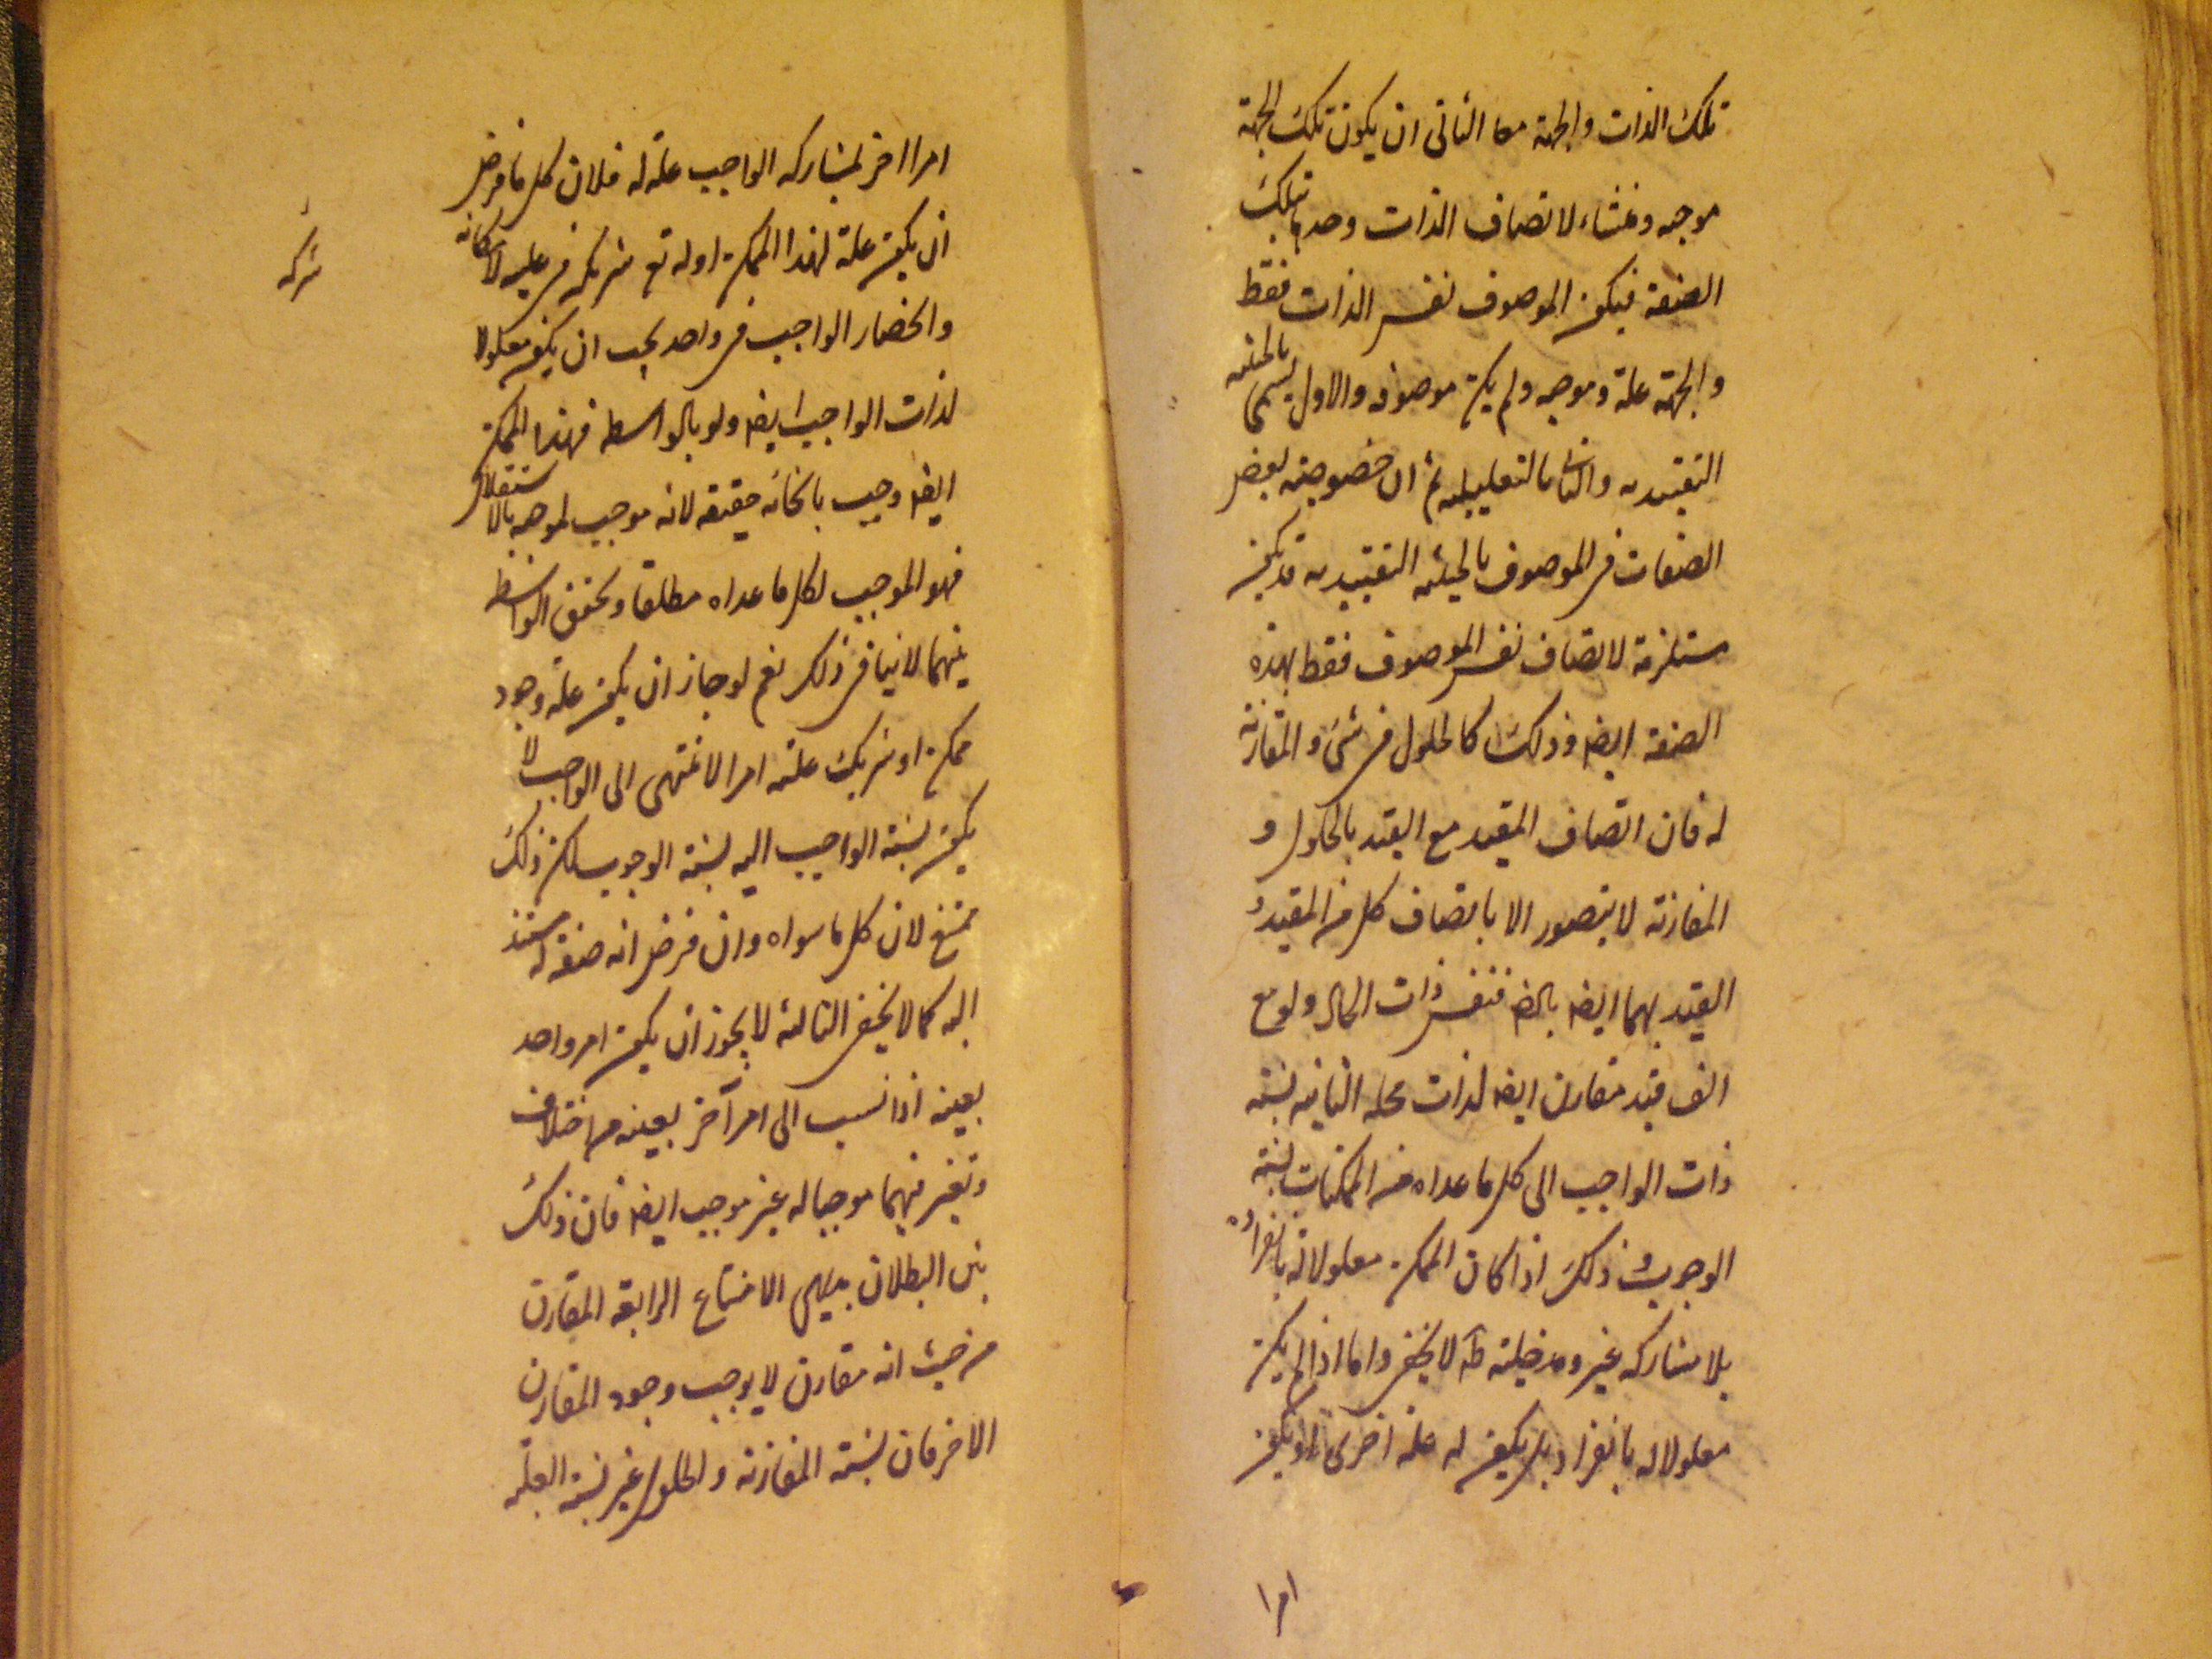 تلك الذات والجهة معا الثانى ان يكون تلك الجهة
موجبه ومنشاء لاتصاف الذات وحدها بتلك
الصفة فيكون الموصوف نفس الذات فقط
والجهة علة وموجبه ولم يكن موصوفه والاول يسمى بالحيثيه
التقييديه والثانى بالتعليليه ثم ان خصوصية بعض
الصفات فى الموصوف بالحيثيه التقييديه قد يكون
مستلزمة لاتصاف نفس الموصوف فقط بهذه
الصفة ايضا وذلك كالحلول فى شئ والمقارنة
له فان اتصاف المقيد مع القيد بالحلول و
المقارنة لا يتصور الا باتصاف كل من المقيد و
القيد بهما ايضا بالضـ فنفس ذات الحال ولو مع
الف قيد مقارن ايضا لذات محله الثانيه نسبة
ذات الواجب الى كل ما عداه من الممكنات نسبة
الوجوب وذلك اذا كان الممكن معلولا له بانفراده
بلا مشاركه غير ومدخليته ظ لا يخفى واما اذا لم يكن
معلولا له بانفراد بل يكون له علة اخرى او يكون
امرا
امرا اخر لمشاركه الواجب علة له فلان كل ما فرض
ان يكون علة لهذا الممكن او له تع شريكه فى عليه لامكانه
شركه
وانحصار الواجب فى واحد يجب ان يكون معلولا
لذات الواجب ايضا ولو بالواسطه فهذا الممكن
ايضا وجب بايجابه حقيقه لانه موجب لموجبه بالاستقلال
فهو الموجب لكل ما عداه مطلقا وتحقق الواسطه
بينهما لا ينافى ذلك نعم لو جاز ان يكون علة وجود
ممكن او شريك علته امرا لا ينتهى الى الواجب لا
يكون نسبة الواجب اليه نسبة الوجوب لكن ذلك
ممتنع لان كل ما سواه وان فرض انه صفة له مستند
اليه كما لا يخفى الثالثة لا يجوز ان يكون امر واحد
بعينه اذا نسب الى امر آخر بعينه من اختلاف
وتغير فيهما موجبا له غير موجب ايضا فان ذلك
بين البطلان بديهى الامتناع الرابعة المقارن
من حيث انه مقارن لا يوجب وجود المقارن
الاخر فان نسبة المقارنة والحلول غير نسبة العليه